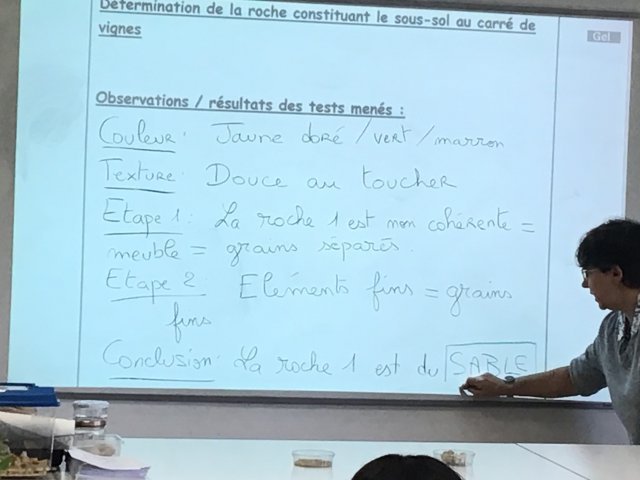 Détermination de la roche constituant le sous-sol au carré de
vignes
Gel
Observations / résultats des tests menés :
Couleur : Jaune doré / vert / marron
Texture : Douce au toucher
Etape 1 : La roche 1 est non cohérente =
meuble = grains séparés.
Etape 2 : Eléments fins = grains
fins
Conclusion : La roche 1 est du SABLE